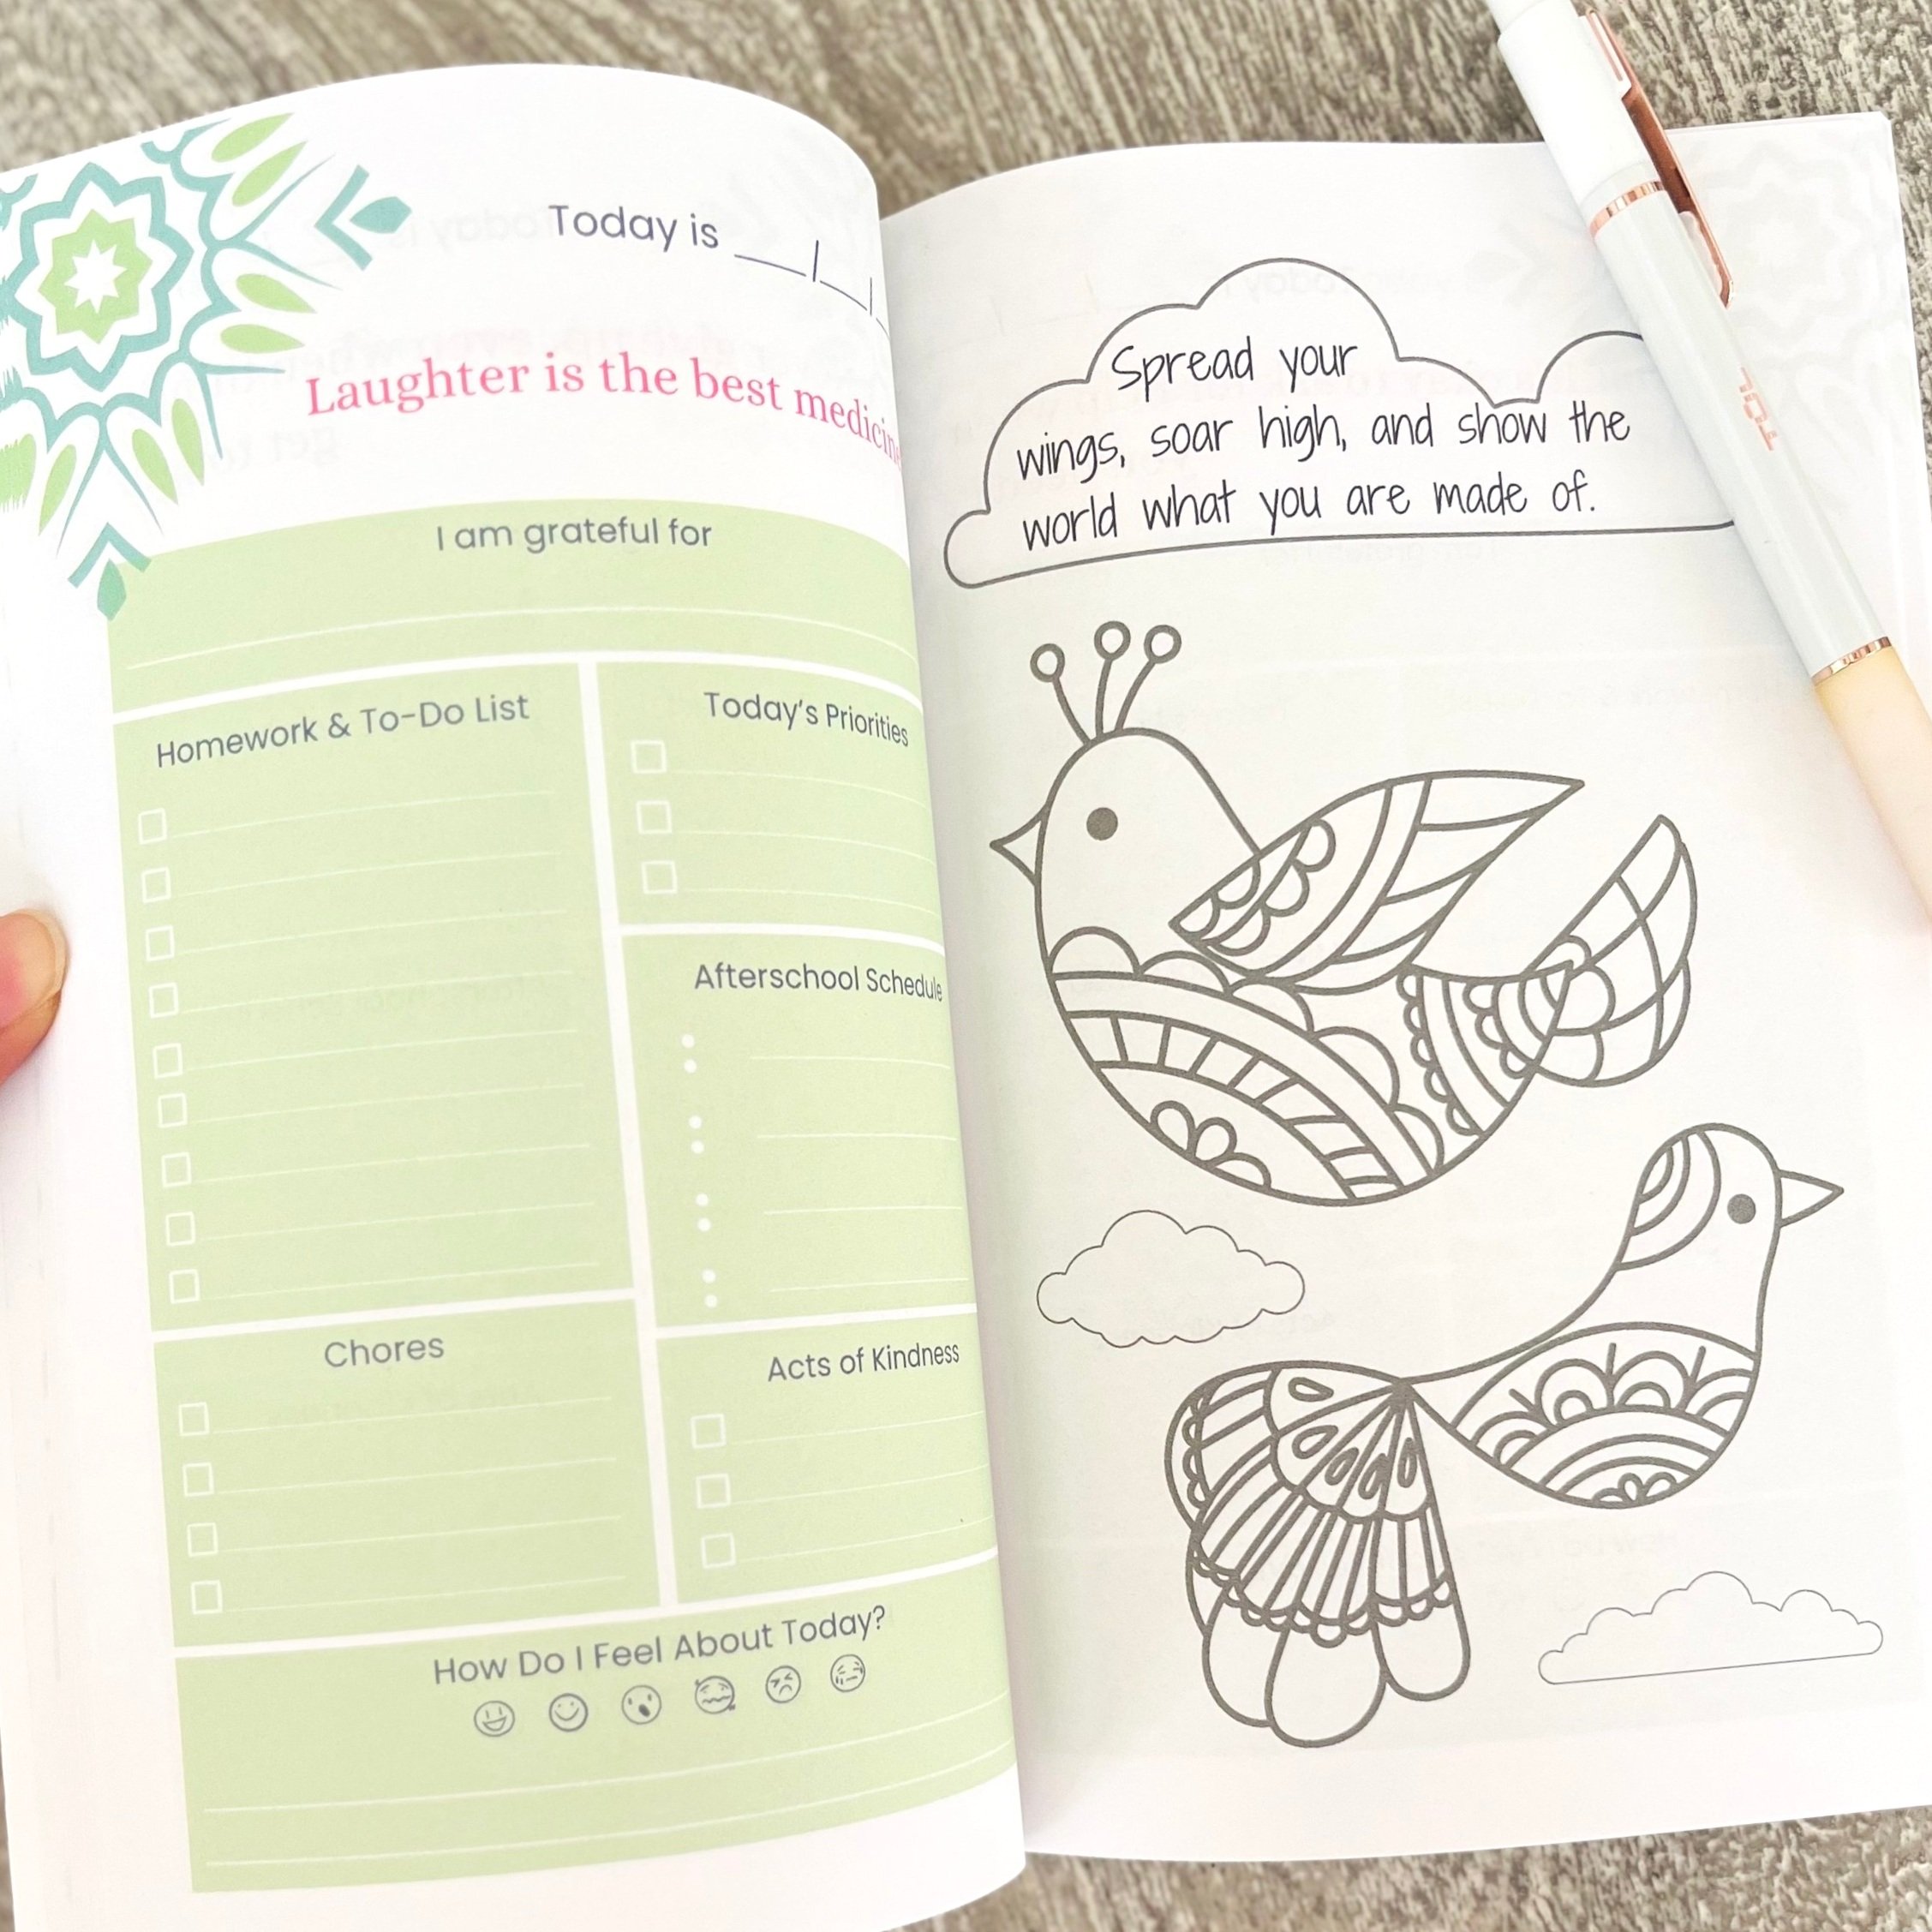 Today is __|__|
Laughter is the best medicin
I am grateful for
Homework & To-Do List
Today's Priorities
Afterschool Schedule
:
:
:
:
Chores
Acts of Kindness
How Do I Feel About Today?
Spread your
wings, soar high, and show the
world what you are made of.